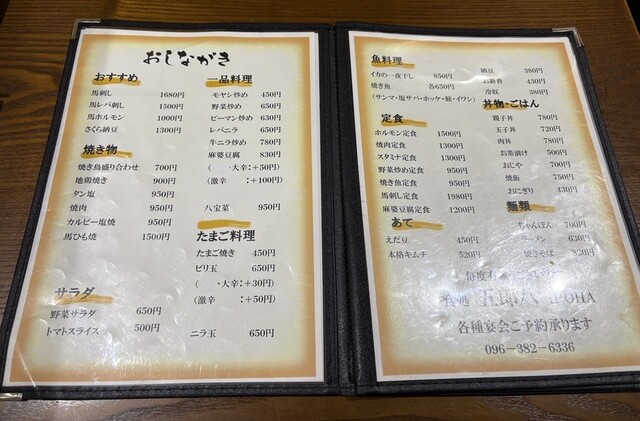 おしながき
おすすめ
馬刺し 1680円
馬レバ刺し 1500円
馬ホルモン 1000円
さくら納豆 1300円
焼き物
焼き鳥盛り合わせ 700円
地鶏焼き 900円
タン塩 950円
焼肉 950円
カルビー塩焼 950円
馬ひも焼 1500円
サラダ
野菜サラダ 650円
トマトスライス 500円
一品料理
モヤシ炒め 450円
野菜炒め 650円
ピーマン炒め 630円
レバニラ 650円
牛ニラ炒め 780円
麻婆豆腐 830円
( 大辛:+50円)
(激辛 :+100円)
八宝菜 950円
たまご料理
たまご焼き 450円
ピリ玉 650円
( ・大辛:+30円)
(激辛 :+50円)
ニラ玉 650円
魚料理
イカの一夜干し 850円
焼き魚 各650円
(サンマ・塩サバ・ホッケ・鮭・イワシ)
定食
ホルモン定食 1500円
焼肉定食 1300円
スタミナ定食 1300円
野菜炒め定食 950円
焼き魚定食 950円
馬刺し定食 1980円
麻婆豆腐定食 1200円
あて
えだ豆 450円
本格キムチ 520円
納豆 380円
お新香 430円
冷奴 380円
丼物・ごはん
親子丼 780円
玉子丼 720円
肉丼 780円
お茶漬け 500円
おじや 700円
焼飯 750円
おにぎり 430円
麺類
ちゃんぽん 700円
ラーメン 630円
焼きそば 820円
毎度有
五郎八 IROHA
各種宴会ご予約承ります
096-382-6336